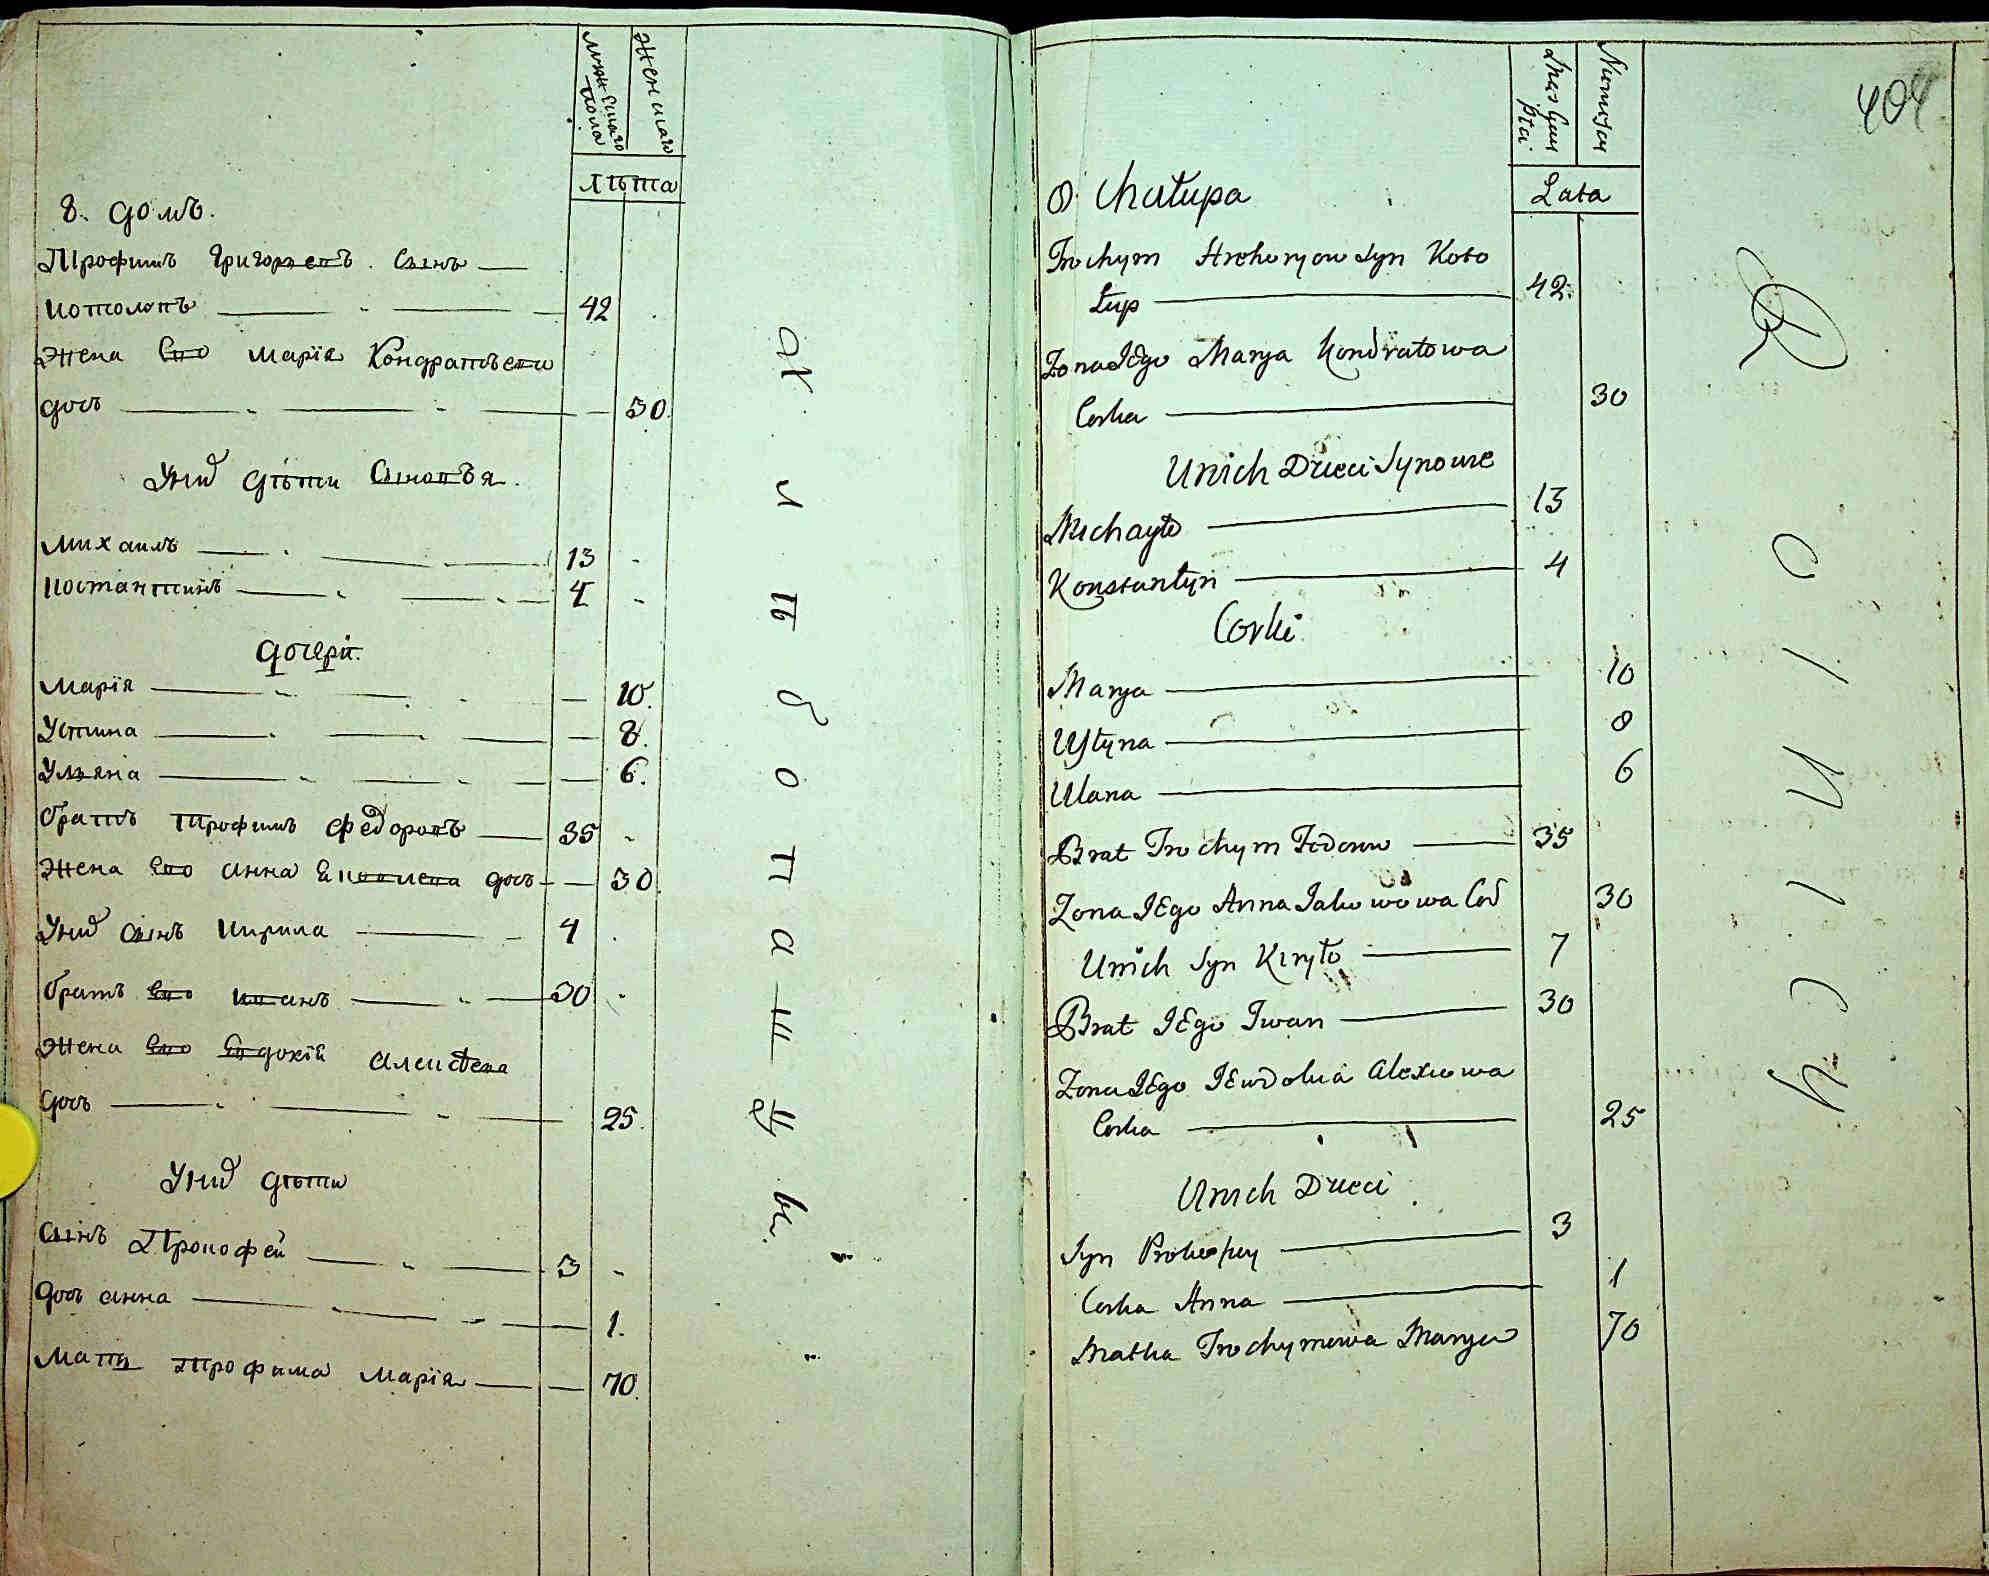 мужескаго пола
женскаго
лѣта
8. домъ.
Трофимъ Григорьевъ. Сынъ
котолопъ 42
Жена Его Марія Кондратьева
дочь 30.
У них дѣти Сыновья.
Михаилъ 13
Костантинъ 4
дочери.
Марія 10.
Устина 8.
Ульяна 6.
братъ Трофимъ Федоровъ 35
Жена Его Анна дочь 30
У них сынъ Кирила 4
братъ Его иванъ 30
Жена Его Евдокія
дочь 25.
У них дѣти
сынъ Прокофей 3
дочь анна 1.
Мать Трофима Марія 70.
Х
л
ѣ
б
о
п
а
ш
ц
ы.
404
Lata
8 Chałupa
Trochym Syn Koto
łup 42.
Zona IEgo Marya Kondratowa
Corka 30
Unich Dzieci Synowie
Michayło 13
Konstantyn 4
Corki
Marya 10
Ustyna 8
Ulana 6
Brat Trochym Fedorow 35
Zona IEgo Anna Jakowowa Cor 30
Unich Syn Kiryło 7
Brat IEgo Iwan 30
Zona IEgo IEwdokia Alexiowa
Corka 25
Unich Dzieci
Syn Prokopey 3
Corka Anna 1
Matka Trochymowa Marya 70
R
O
l
n
i
c
y